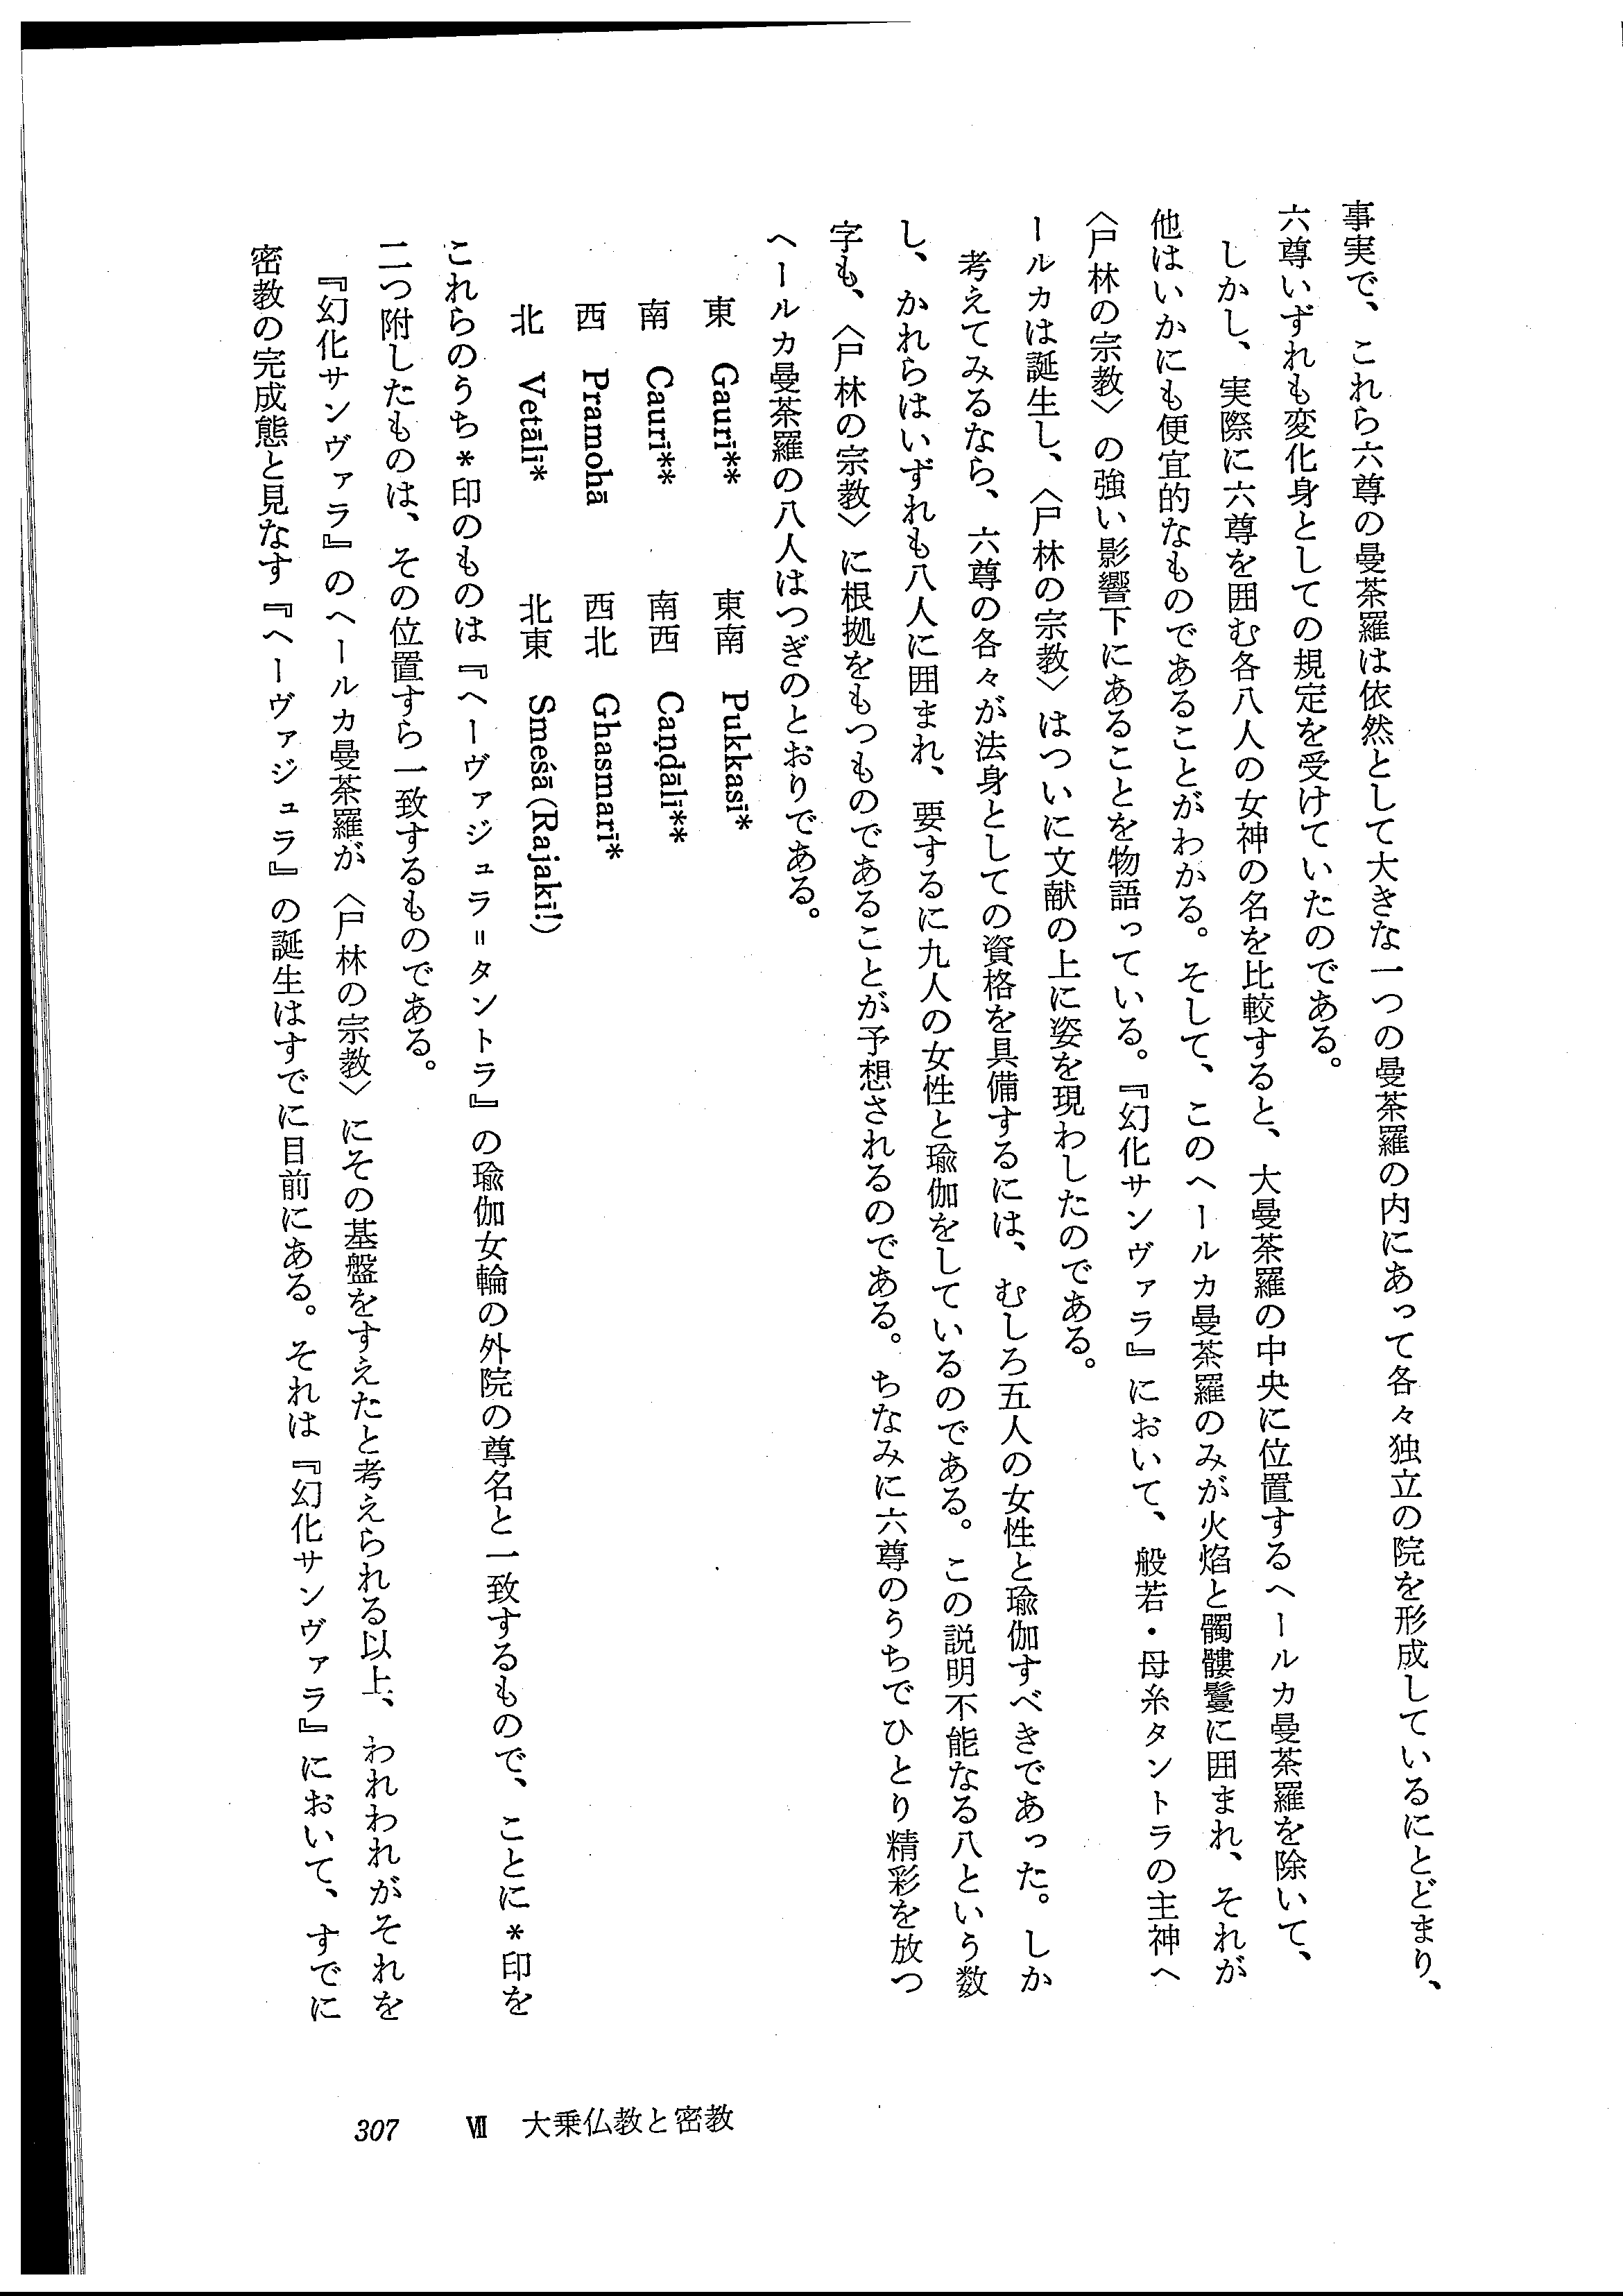 事実で、これら六尊の曼荼羅は依然として大きな一つの曼荼羅の内にあって各々独立の院を形成しているにとどまり、
六尊いずれも変化身としての規定を受けていたのである。
しかし、実際に六尊を囲む各八人の女神の名を比較すると、大曼荼羅の中央に位置するヘールカ曼荼羅を除いて、
他はいかにも便宜的なものであることがわかる。そして、このヘールカ曼荼羅のみが火焰と髑髏鬘に囲まれ、それが
〈尸林の宗教〉の強い影響下にあることを物語っている。『幻化サンヴァラ』において、般若・母系タントラの主神ヘ
ールカは誕生し、〈尸林の宗教〉はついに文献の上に姿を現わしたのである。
考えてみるなら、六尊の各々が法身としての資格を具備するには、むしろ五人の女性と瑜伽すべきであった。しか
し、かれらはいずれも八人に囲まれ、要するに九人の女性と瑜伽をしているのである。この説明不能なる八という数
字も、〈尸林の宗教〉に根拠をもつものであることが予想されるのである。ちなみに六尊のうちでひとり精彩を放つ
ヘールカ曼荼羅の八人はつぎのとおりである。
東 Gaurī** 東南 Pukkasī*
南 Caurī** 南西 Caṇḍālī**
西 Pramohā 西北 Ghasmarī*
北 Vetālī* 北東 Smeśā (Rajakī!)
これらのうち*印のものは『ヘーヴァジュラ＝タントラ』の瑜伽女輪の外院の尊名と一致するもので、ことに*印を
二つ附したものは、その位置すら一致するものである。
『幻化サンヴァラ』のヘールカ曼荼羅が〈尸林の宗教〉にその基盤をすえたと考えられる以上、われわれがそれを
密教の完成態と見なす『ヘーヴァジュラ』の誕生はすでに目前にある。それは『幻化サンヴァラ』において、すでに
307 Ⅶ 大乗仏教と密教